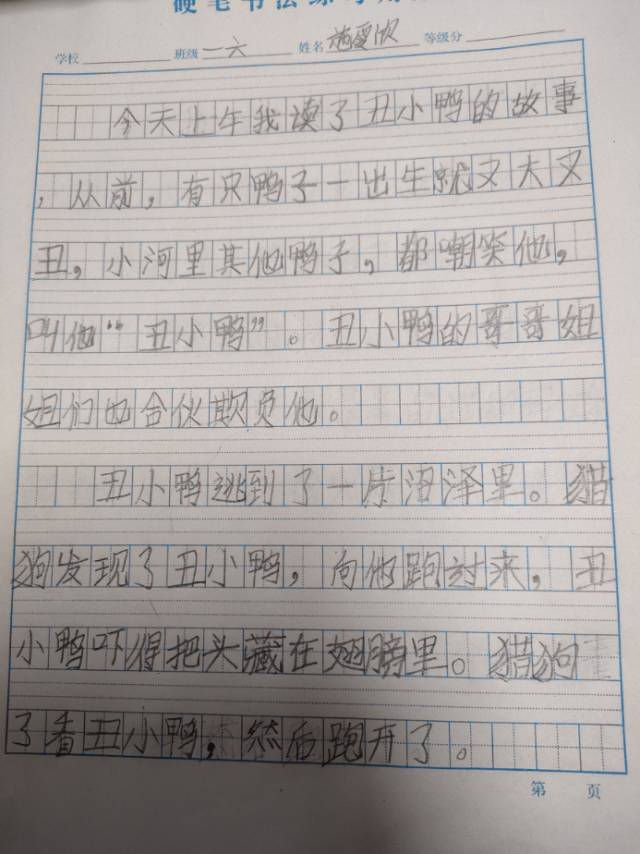 硬笔书法练习用
学校 班级 一六 姓名 等级分
今天上午我读了丑小鸭的故事
，从前，有只鸭子一出生就又大又
丑，小河里其他鸭子，都嘲笑他，
叫他“丑小鸭”。丑小鸭的哥哥姐
姐们也合伙欺负他。
丑小鸭逃到了一片沼泽里。猎
狗发现了丑小鸭，向他跑过来，丑
小鸭吓得把头藏在翅膀里。猎狗
了看丑小鸭，然后跑开了。
第 页